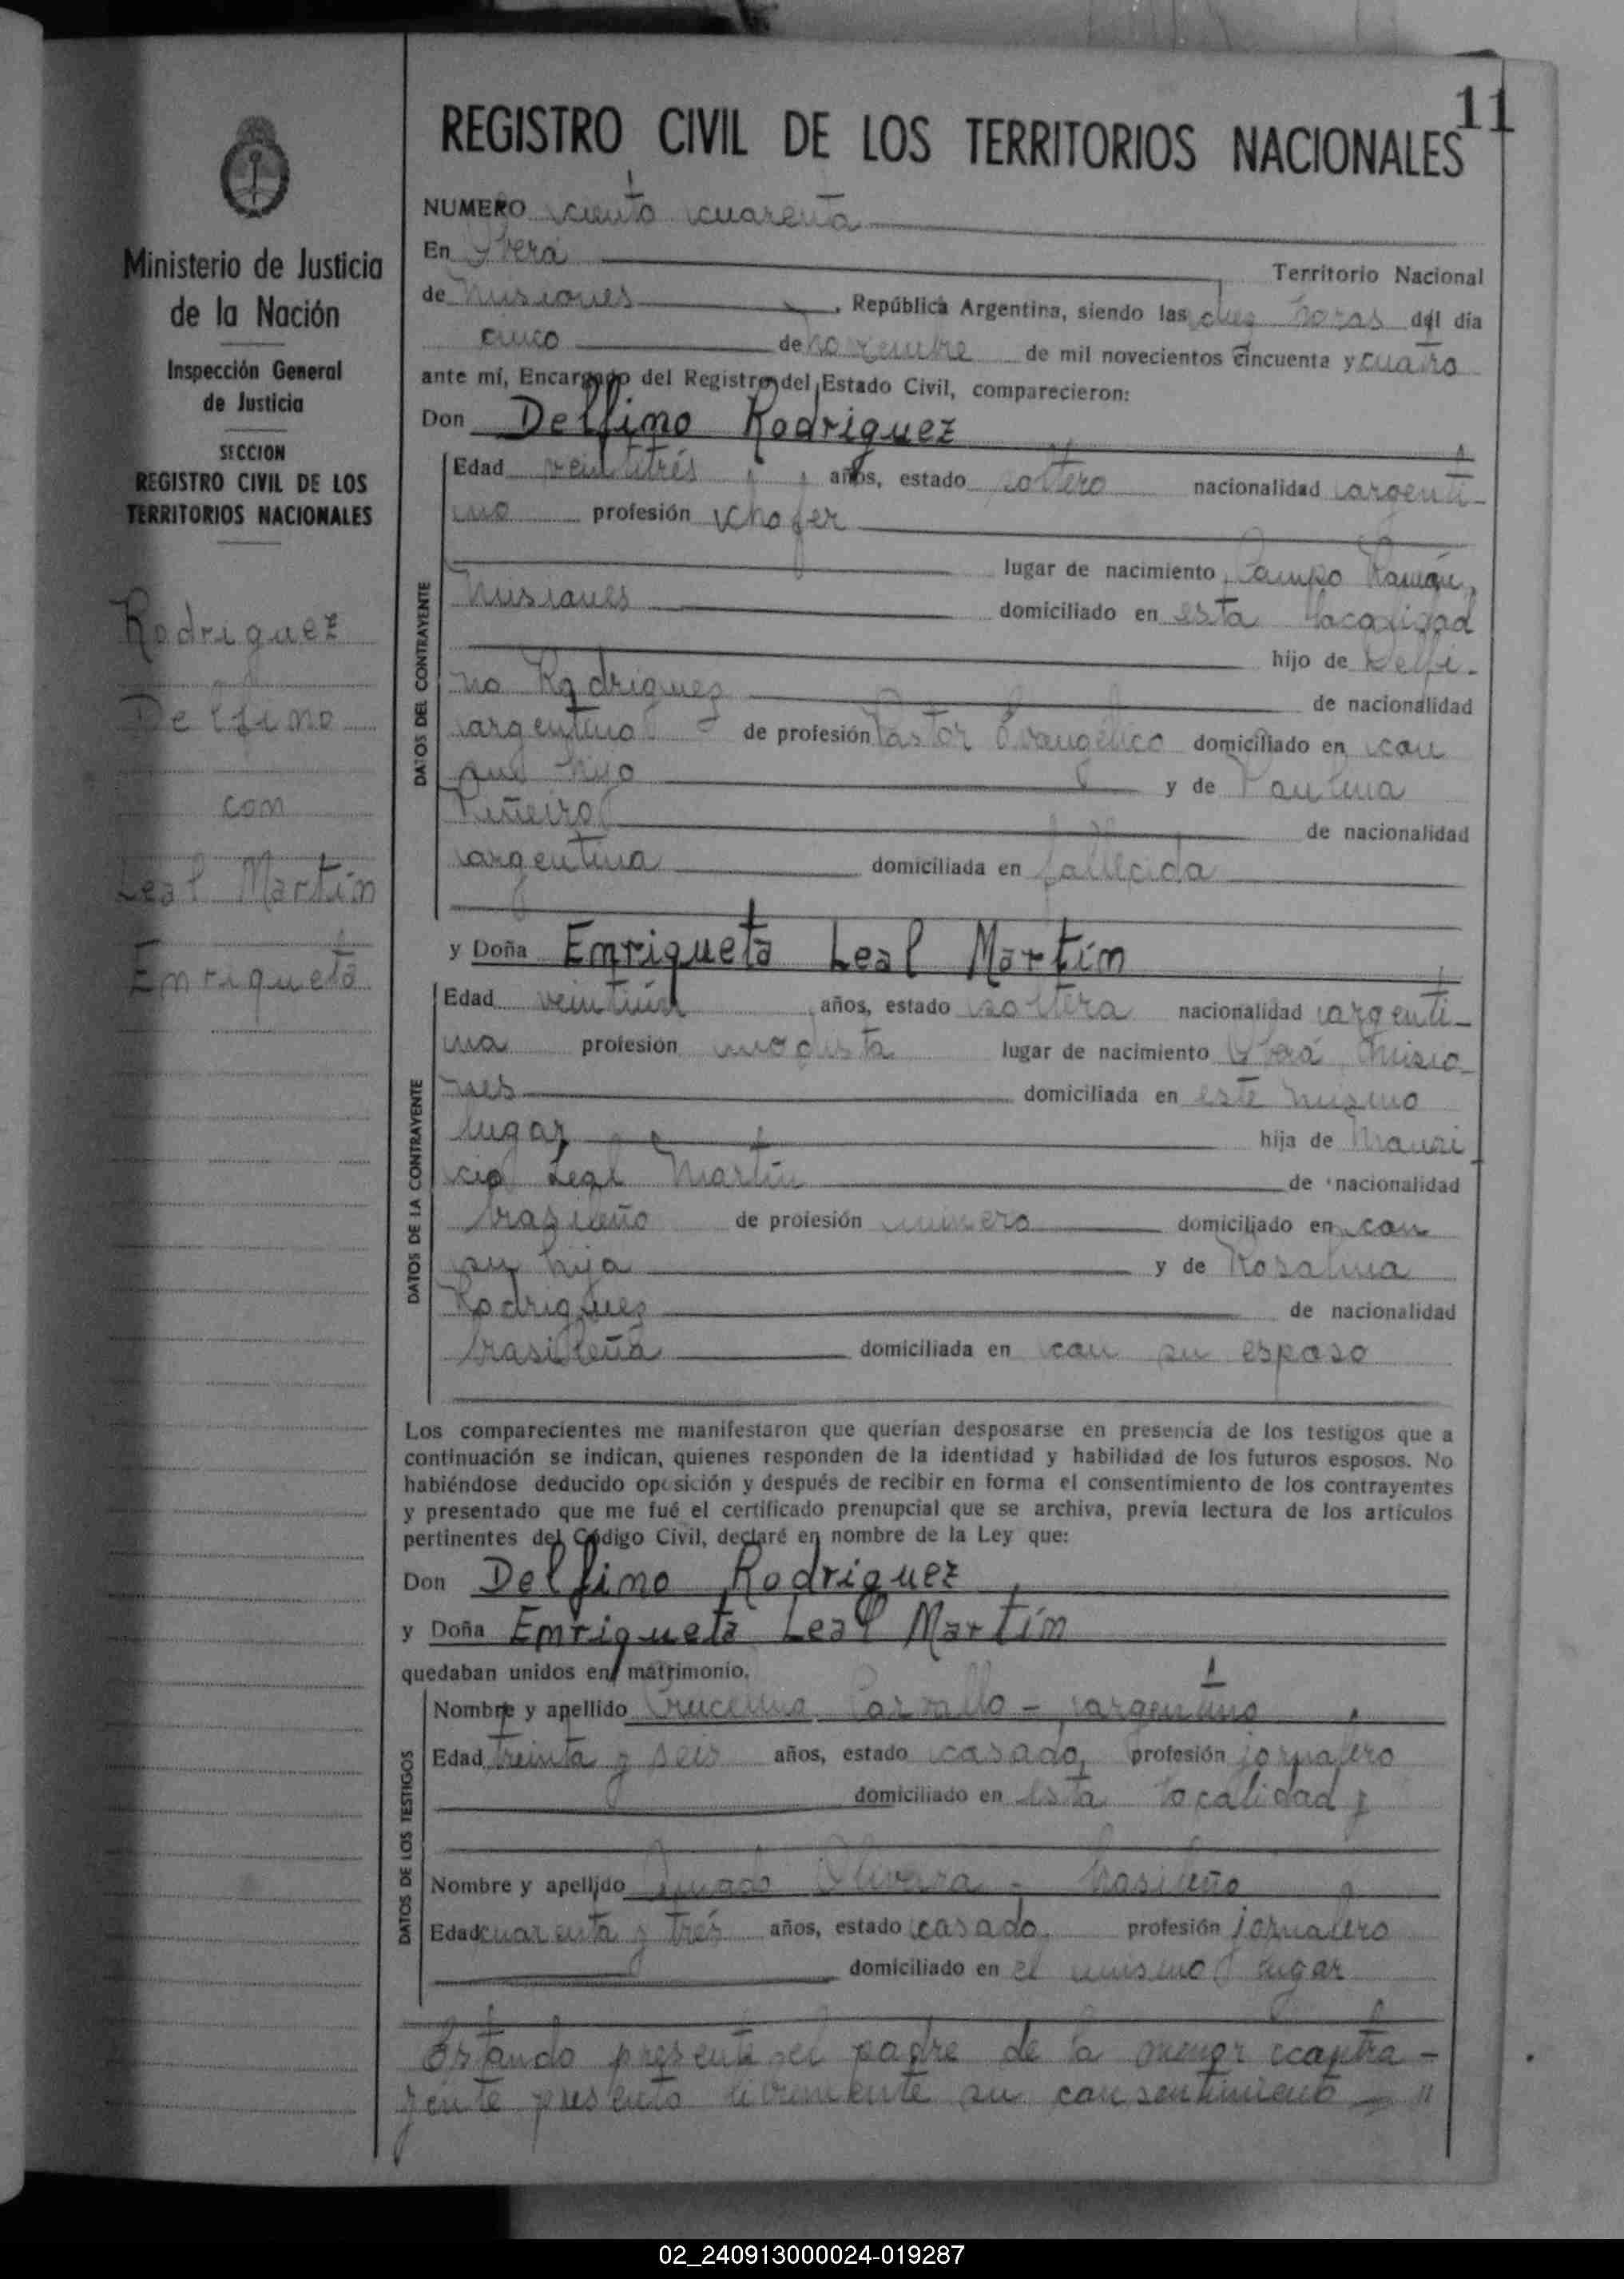 11
REGISTRO CIVIL DE LOS TERRITORIOS NACIONALES
Ministerio de Justicia
de la Nación
Inspección General
de Justicia
SECCION
REGISTRO CIVIL DE LOS
TERRITORIOS NACIONALES
Rodriguez
Delfino
con
Leal Martín
Enriqueta
NUMERO ciento cuarenta
En Territorio Nacional
de Misiones, República Argentina, siendo las horas del día
cinco de noviembre de mil novecientos cincuenta y cuatro
ante mí, Encargado del Registro del Estado Civil, comparecieron:
Don Delfino Rodriguez
DATOS DEL CONTRAYENTE
Edad veintitrés años, estado soltero nacionalidad argenti-
no profesión chofer
lugar de nacimiento Campo Ramón,
Misiones domiciliado en esta localidad
hijo de Delfi-
no Rodriguez de nacionalidad
argentino de profesión Pastor Evangélico domiciliado en con
su hijo y de Paulina
Piñeiro de nacionalidad
argentina domiciliada en fallecida
y Doña Enriqueta Leal Martín
DATOS DE LA CONTRAYENTE
Edad veintiún años, estado soltera nacionalidad argenti-
na profesión modista lugar de nacimiento Misio-
nes domiciliada en este mismo
lugar hija de Mauri
cio Leal Martín de nacionalidad
brasileño de profesión minero domiciliado en con
su hija y de Rosalina
Rodriguez de nacionalidad
brasileña domiciliada en con su esposo
Los comparecientes me manifestaron que querían desposarse en presencia de los testigos que a
continuación se indican, quienes responden de la identidad y habilidad de los futuros esposos. No
habiéndose deducido oposición y después de recibir en forma el consentimiento de los contrayentes
y presentado que me fué el certificado prenupcial que se archiva, previa lectura de los artículos
pertinentes del Código Civil, declaré en nombre de la Ley que:
Don Delfino Rodriguez
y Doña Enriqueta Leal Martín
quedaban unidos en matrimonio.
DATOS DE LOS TESTIGOS
Nombre y apellido - argentino
Edad treinta y seis años, estado casado, profesión jornalero
domiciliado en esta localidad y
Nombre y apellido Olivera - brasileño
Edad cuarenta y tres años, estado casado, profesión jornalero
domiciliado en el mismo lugar
Estando presente el padre de la menor contra-
yente prestó libremente su consentimiento
02_240913000024-019287